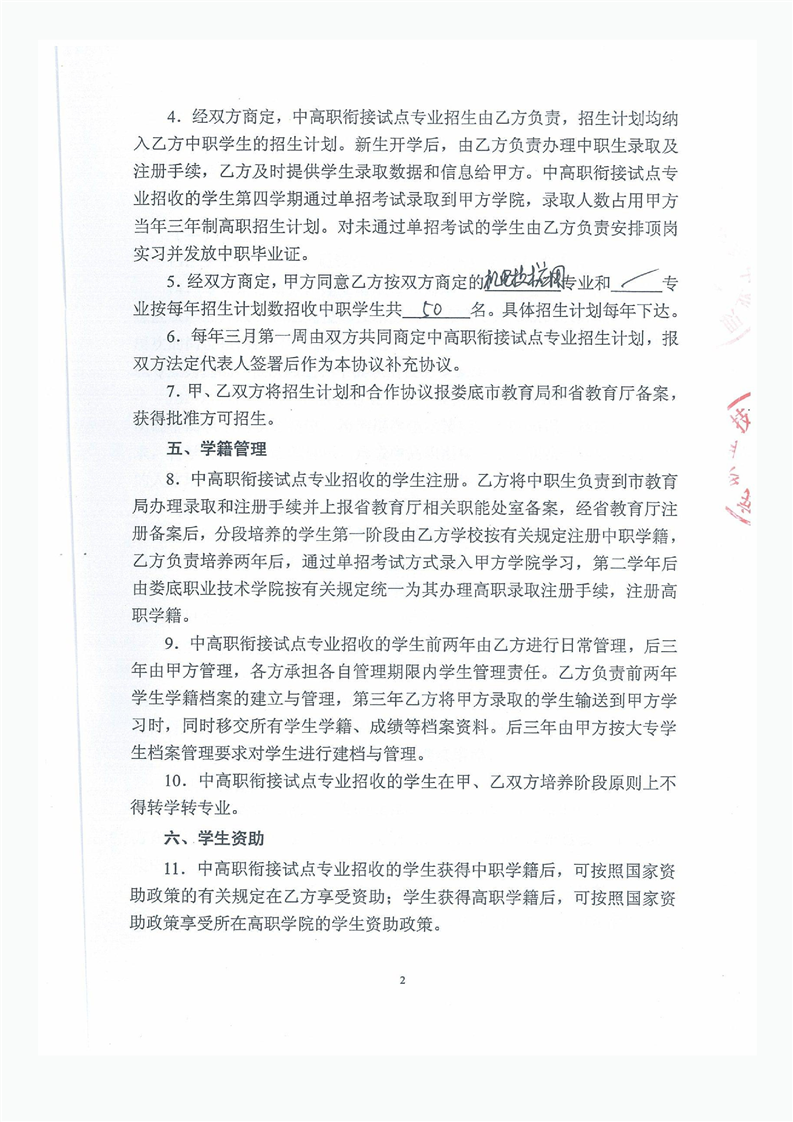 4．经双方商定，中高职衔接试点专业招生由乙方负责，招生计划均纳
入乙方中职学生的招生计划。新生开学后，由乙方负责办理中职生录取及
注册手续，乙方及时提供学生录取数据和信息给甲方。中高职衔接试点专
业招收的学生第四学期通过单招考试录取到甲方学院，录取人数占用甲方
当年三年制高职招生计划。对未通过单招考试的学生由乙方负责安排顶岗
实习并发放中职毕业证。
5．经双方商定，甲方同意乙方按双方商定的机电技术应用专业和 专
业按每年招生计划数招收中职学生共50名。具体招生计划每年下达。
6．每年三月第一周由双方共同商定中高职衔接试点专业招生计划，报
双方法定代表人签署后作为本协议补充协议。
7．甲、乙双方将招生计划和合作协议报娄底市教育局和省教育厅备案，
获得批准方可招生。
五、学籍管理
8．中高职衔接试点专业招收的学生注册。乙方将中职生负责到市教育
局办理录取和注册手续并上报省教育厅相关职能处室备案，经省教育厅注
册备案后，分段培养的学生第一阶段由乙方学校按有关规定注册中职学籍，
乙方负责培养两年后，通过单招考试方式录入甲方学院学习，第二学年后
由娄底职业技术学院按有关规定统一为其办理高职录取注册手续，注册高
职学籍。
9．中高职衔接试点专业招收的学生前两年由乙方进行日常管理，后三
年由甲方管理，各方承担各自管理期限内学生管理责任。乙方负责前两年
学生学籍档案的建立与管理，第三年乙方将甲方录取的学生输送到甲方学
习时，同时移交所有学生学籍、成绩等档案资料。后三年由甲方按大专学
生档案管理要求对学生进行建档与管理。
10．中高职衔接试点专业招收的学生在甲、乙双方培养阶段原则上不
得转学转专业。
六、学生资助
11．中高职衔接试点专业招收的学生获得中职学籍后，可按照国家资
助政策的有关规定在乙方享受资助；学生获得高职学籍后，可按照国家资
助政策享受所在高职学院的学生资助政策。
2
技